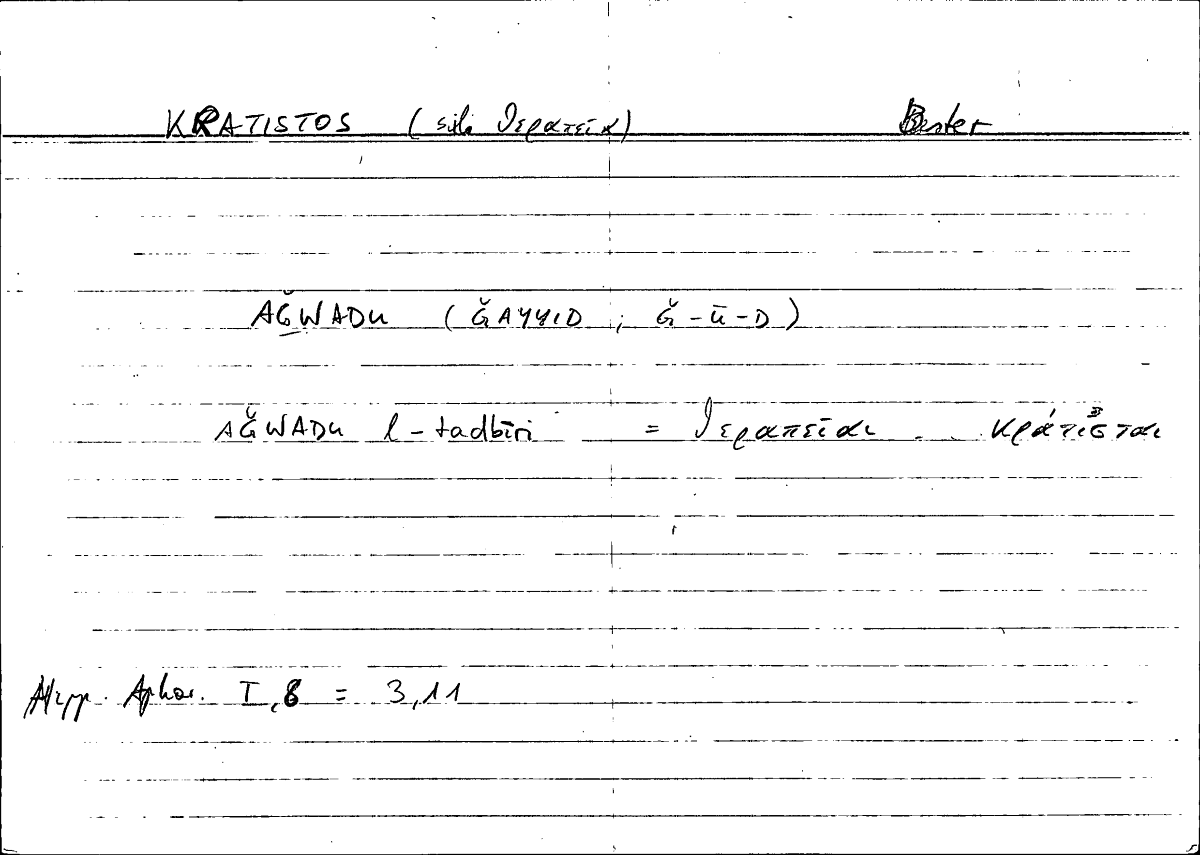 KRATISTOS (scil. θεραπεία) Bester
AǦWADU (ǦAYYID ; Ǧ-Ū-D)
AǦWADU l-tadbīri = θεραπεῖαι . . κράτισται
Hipp. Aphor. I,6 = 3,11